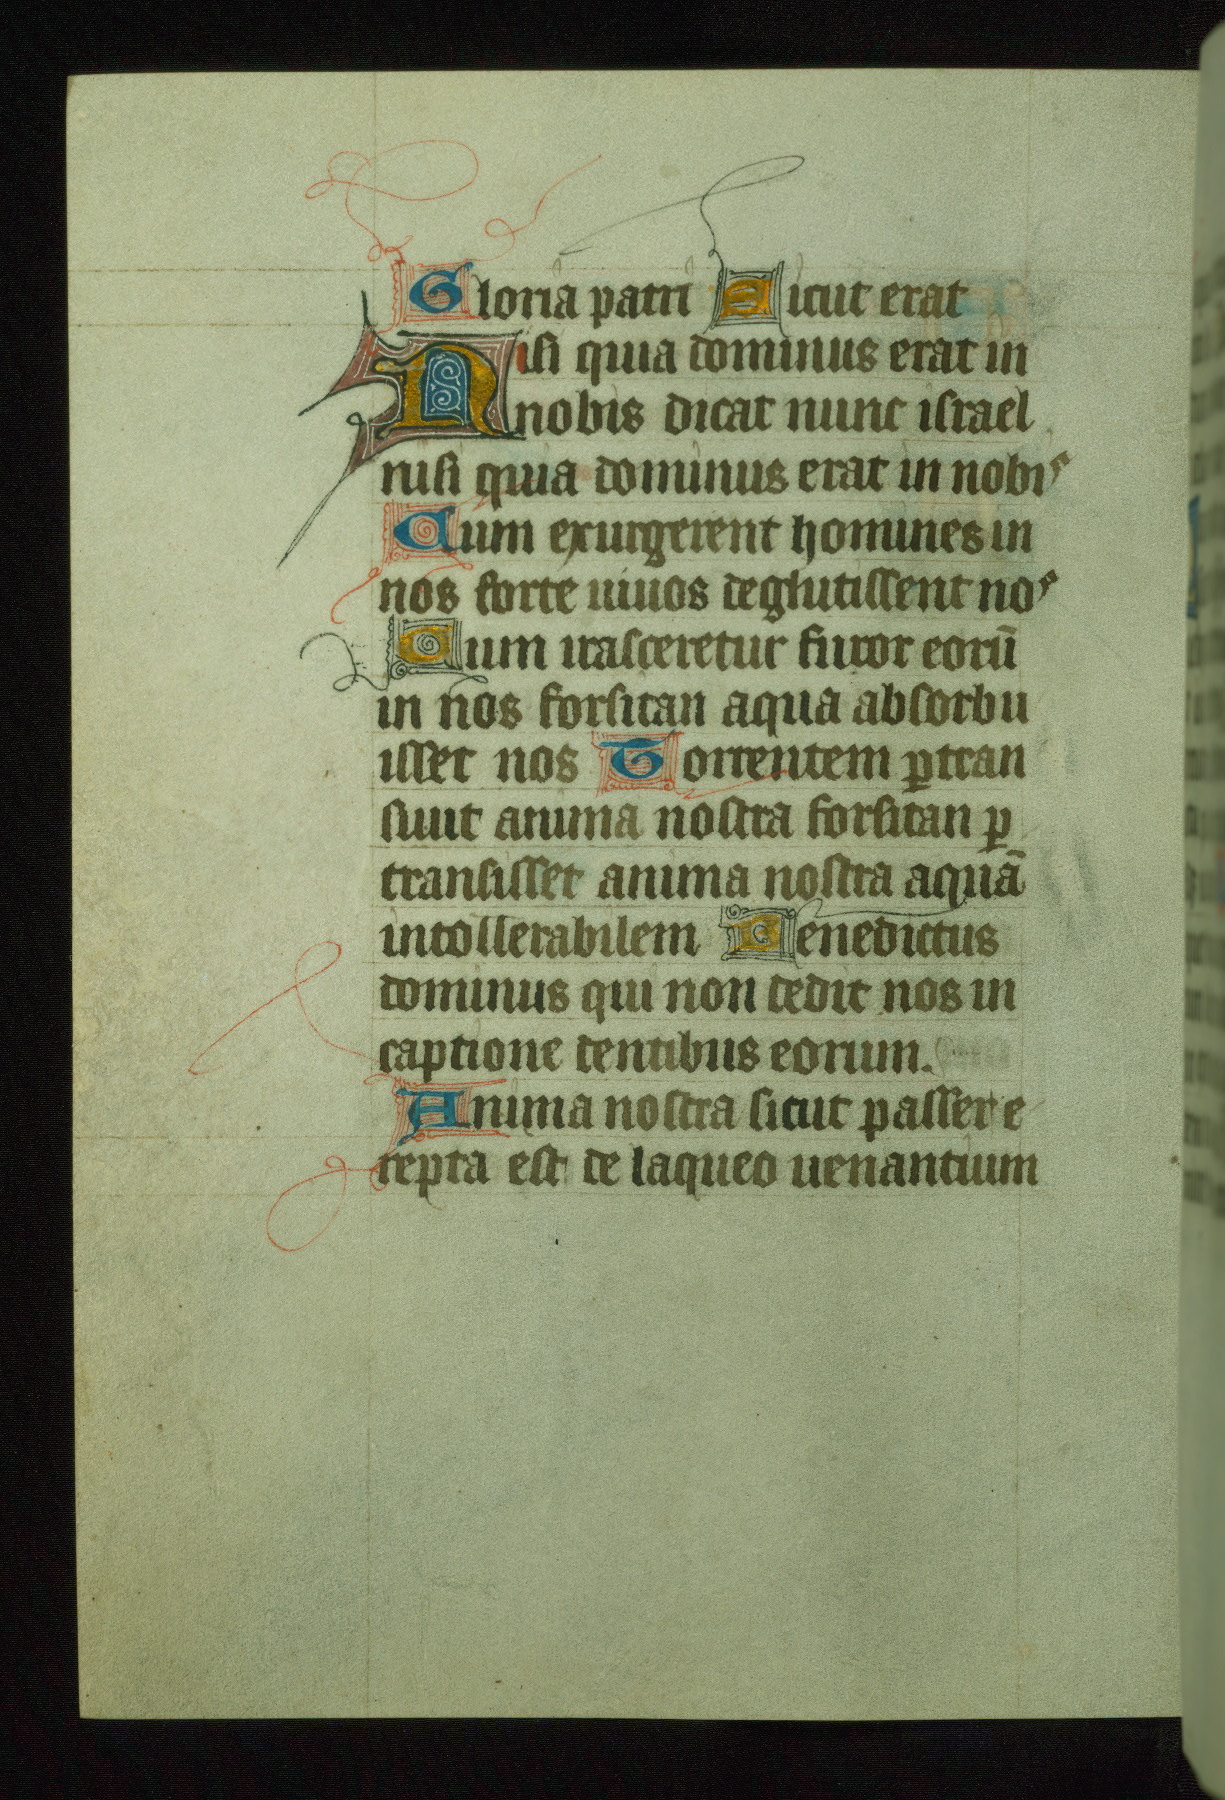 Gloria patri Sicut erat
Nisi quia dominus erat in
nobis dicat nunc israel
nisi quia dominus erat in nobis
Cum exurgerent homines in
nos forte uiuos deglutissent nos
Cum irasceretur furor eorū
in nos forsitan aqua absorbu
isset nos Torrentem ꝑtran
siuit anima nostra forsitan ꝑ
transisset anima nostra aquā
intollerabilem Benedictus
dominus qui non dedit nos in
captione dentibus eorum.
Anima nostra sicut passer e
repta est de laqueo uenantium